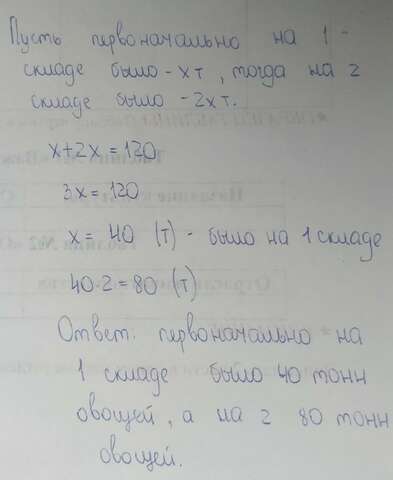 Пусть первоначально на 1-
складе было - xт, тогда на 2
складе было - 2xт.
x+2x=120
3x=120
x= 40 (т) - было на 1 складе
40·2=80 (т)
Ответ: первоначально на
1 складе было 40 тонн
овощей, а на 2 80 тонн
овощей.